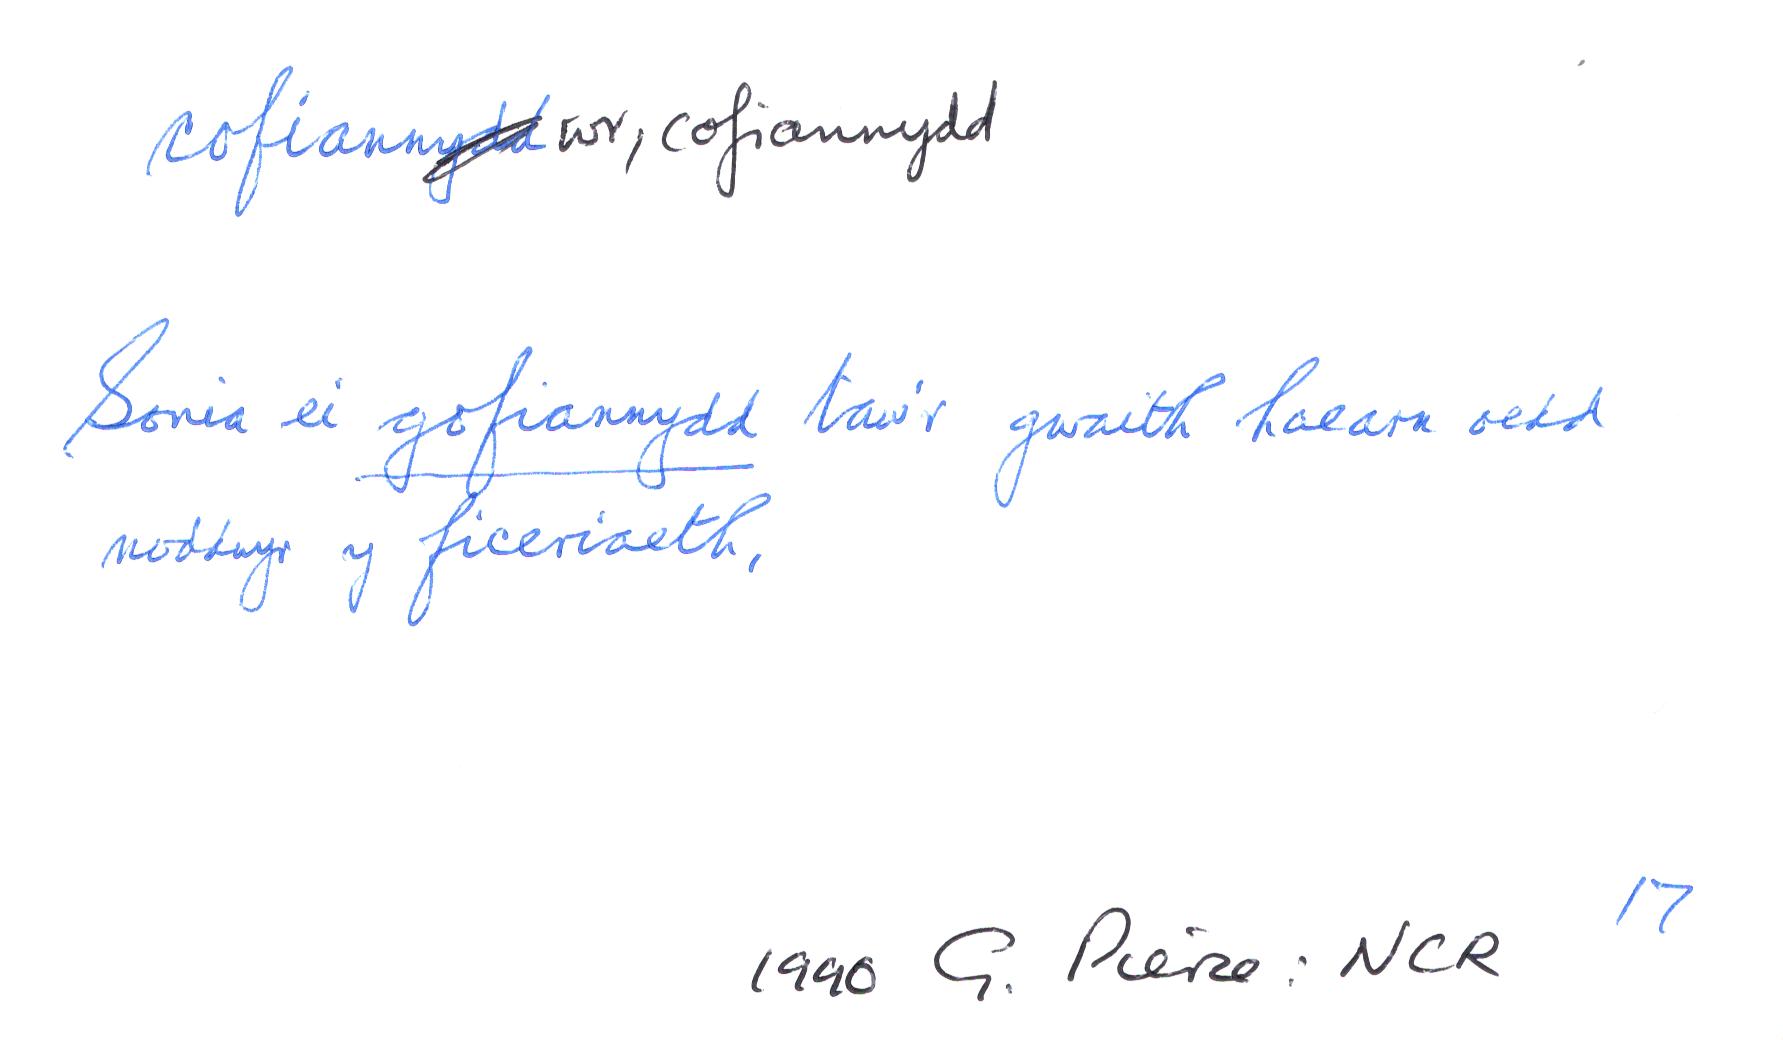 cofiannydd wr, cofiannydd
Sonia ei gofiannydd taw'r gwaith haearn oedd
noddwyr y ficeriaeth.
17
1990 G. Pierce: NCR